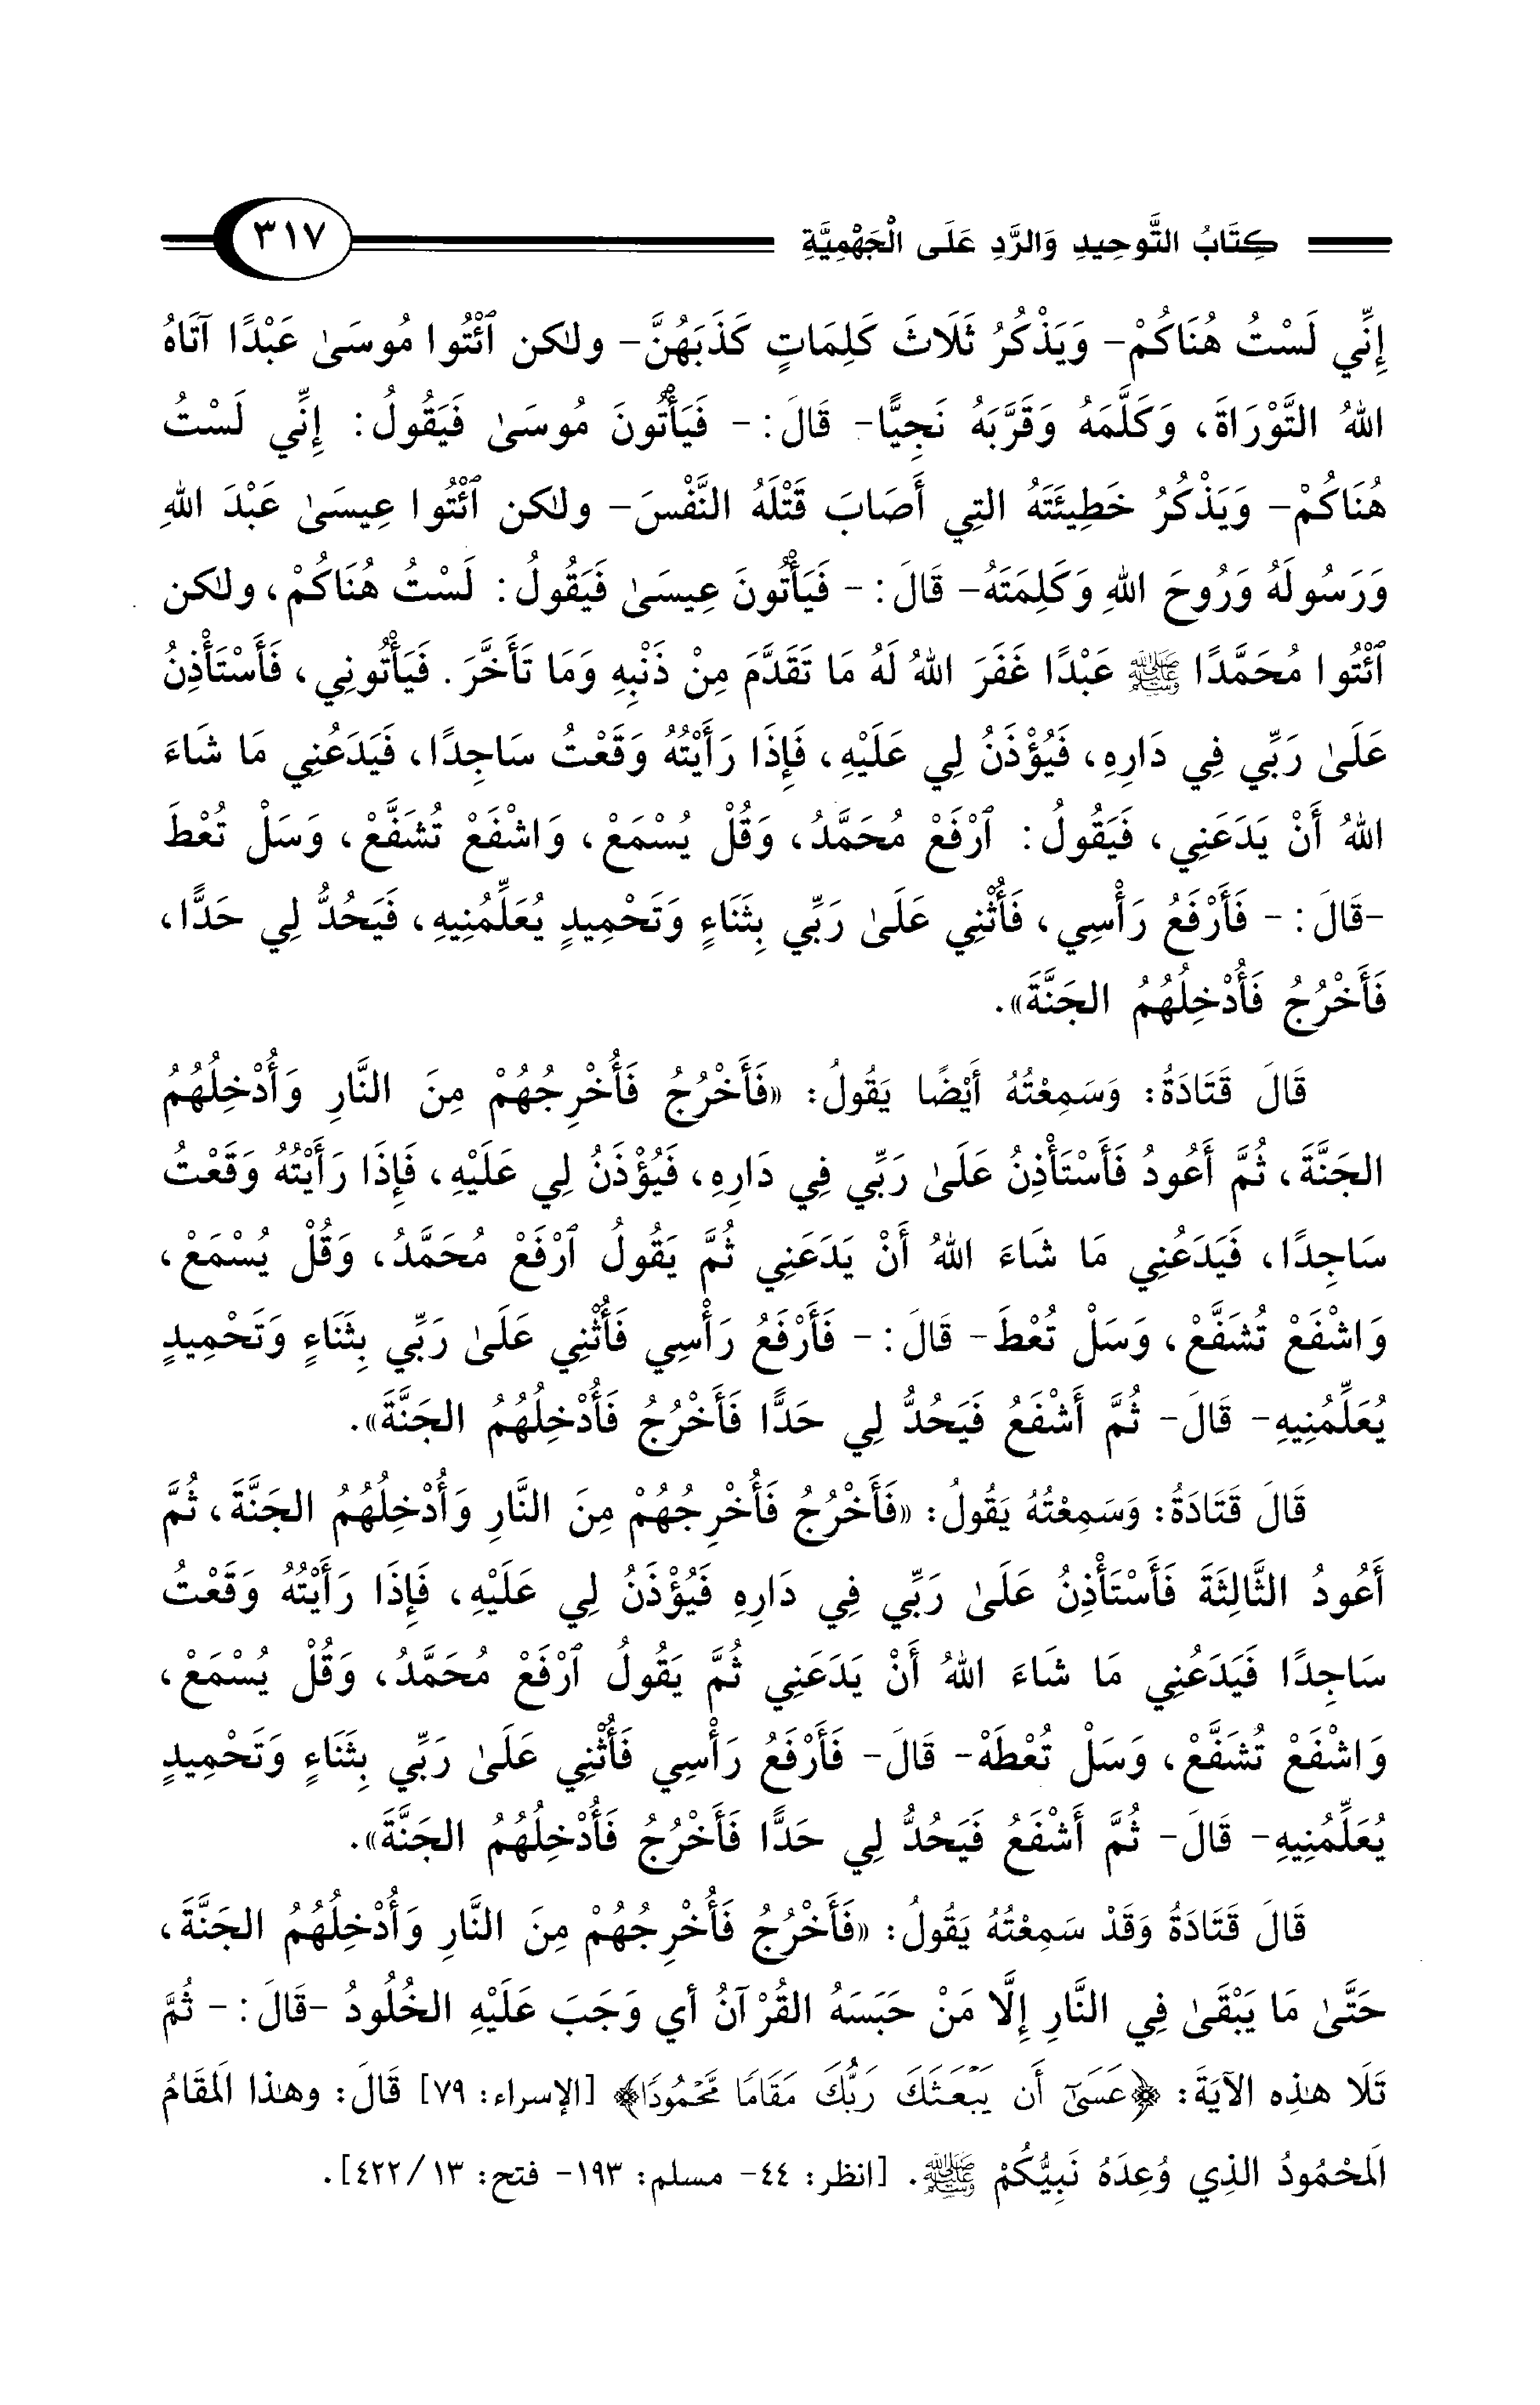 كِتَابُ التَّوحِيدِ وَالرَّدِ عَلَى الْجَهْمِيَّةِ ٣١٧
إِنِّي لَسْتُ هُنَاكُمْ- وَيَذْكُرُ ثَلَاثَ كَلِمَاتٍ كَذَبَهُنَّ- ولكن ٱئْتُوا مُوسَىٰ عَبْدًا آتَاهُ
اللهُ التَّوْرَاةَ، وَكَلَّمَهُ وَقَرَّبَهُ نَجِيًّا- قَالَ: - فَيَأْتُونَ مُوسَىٰ فَيَقُولُ: إِنِّي لَسْتُ
هُنَاكُمْ- وَيَذْكُرُ خَطِيئَتَهُ التِي أَصَابَ قَتْلَهُ النَّفْسَ- ولكن ٱئْتُوا عِيسَىٰ عَبْدَ اللهِ
وَرَسُولَهُ وَرُوحَ اللهِ وَكَلِمَتَهُ- قَالَ: - فَيَأْتُونَ عِيسَىٰ فَيَقُولُ: لَسْتُ هُنَاكُمْ، ولكن
ٱئْتُوا مُحَمَّدًا ﷺ عَبْدًا غَفَرَ اللهُ لَهُ مَا تَقَدَّمَ مِنْ ذَنْبِهِ وَمَا تَأَخَّرَ. فَيَأْتُونِي، فَأَسْتَأْذِنُ
عَلَىٰ رَبِّي فِي دَارِهِ، فَيُؤْذَنُ لِي عَلَيْهِ، فَإِذَا رَأَيْتُهُ وَقَعْتُ سَاجِدًا، فَيَدَعُنِي مَا شَاءَ
اللهُ أَنْ يَدَعَنِي، فَيَقُولُ: ٱرْفَعْ مُحَمَّدُ، وَقُلْ يُسْمَعْ، وَاشْفَعْ تُشَفَّعْ، وَسَلْ تُعْطَ
-قَالَ: - فَأَرْفَعُ رَأْسِي، فَأُثْنِي عَلَىٰ رَبِّي بِثَنَاءٍ وَتَحْمِيدٍ يُعَلِّمُنِيهِ، فَيَحُدُّ لِي حَدًّا،
فَأَخْرُجُ فَأُدْخِلُهُمُ الجَنَّةَ».
قَالَ قَتَادَةُ: وَسَمِعْتُهُ أَيْضًا يَقُولُ: «فَأَخْرُجُ فَأُخْرِجُهُمْ مِنَ النَّارِ وَأُدْخِلُهُمُ
الجَنَّةَ، ثُمَّ أَعُودُ فَأَسْتَأْذِنُ عَلَىٰ رَبِّي فِي دَارِهِ، فَيُؤْذَنُ لِي عَلَيْهِ، فَإِذَا رَأَيْتُهُ وَقَعْتُ
سَاجِدًا، فَيَدَعُنِي مَا شَاءَ اللهُ أَنْ يَدَعَنِي ثُمَّ يَقُولُ ٱرْفَعْ مُحَمَّدُ، وَقُلْ يُسْمَعْ،
وَاشْفَعْ تُشَفَّعْ، وَسَلْ تُعْطَ- قَالَ: - فَأَرْفَعُ رَأْسِي فَأُثْنِي عَلَىٰ رَبِّي بِثَنَاءٍ وَتَحْمِيدٍ
يُعَلِّمُنِيهِ- قَالَ- ثُمَّ أَشْفَعُ فَيَحُدُّ لِي حَدًّا فَأَخْرُجُ فَأُدْخِلُهُمُ الجَنَّةَ».
قَالَ قَتَادَةُ: وَسَمِعْتُهُ يَقُولُ: «فَأَخْرُجُ فَأُخْرِجُهُمْ مِنَ النَّارِ وَأُدْخِلُهُمُ الجَنَّةَ، ثُمَّ
أَعُودُ الثَّالِثَةَ فَأَسْتَأْذِنُ عَلَىٰ رَبِّي فِي دَارِهِ فَيُؤْذَنُ لِي عَلَيْهِ، فَإِذَا رَأَيْتُهُ وَقَعْتُ
سَاجِدًا فَيَدَعُنِي مَا شَاءَ اللهُ أَنْ يَدَعَنِي ثُمَّ يَقُولُ ٱرْفَعْ مُحَمَّدُ، وَقُلْ يُسْمَعْ،
وَاشْفَعْ تُشَفَّعْ، وَسَلْ تُعْطَهْ- قَالَ- فَأَرْفَعُ رَأْسِي فَأُثْنِي عَلَىٰ رَبِّي بِثَنَاءٍ وَتَحْمِيدٍ
يُعَلِّمُنِيهِ- قَالَ- ثُمَّ أَشْفَعُ فَيَحُدُّ لِي حَدًّا فَأَخْرُجُ فَأُدْخِلُهُمُ الجَنَّةَ».
قَالَ قَتَادَةُ وَقَدْ سَمِعْتُهُ يَقُولُ: «فَأَخْرُجُ فَأُخْرِجُهُمْ مِنَ النَّارِ وَأُدْخِلُهُمُ الجَنَّةَ،
حَتَّىٰ مَا يَبْقَىٰ فِي النَّارِ إِلَّا مَنْ حَبَسَهُ القُرْآنُ أي وَجَبَ عَلَيْهِ الخُلُودُ -قَالَ: - ثُمَّ
تَلَا هذِه الآيَةَ: ﴿عَسَىٰٓ أَن يَبْعَثَكَ رَبُّكَ مَقَامًا مَّحْمُودًا﴾ [الإسراء: ٧٩] قَالَ: وهذا المَقَامُ
المَحْمُودُ الذِي وُعِدَهُ نَبِيُّكُمْ ﷺ. [انظر: ٤٤- مسلم: ١٩٣- فتح: ١٣/ ٤٢٢].